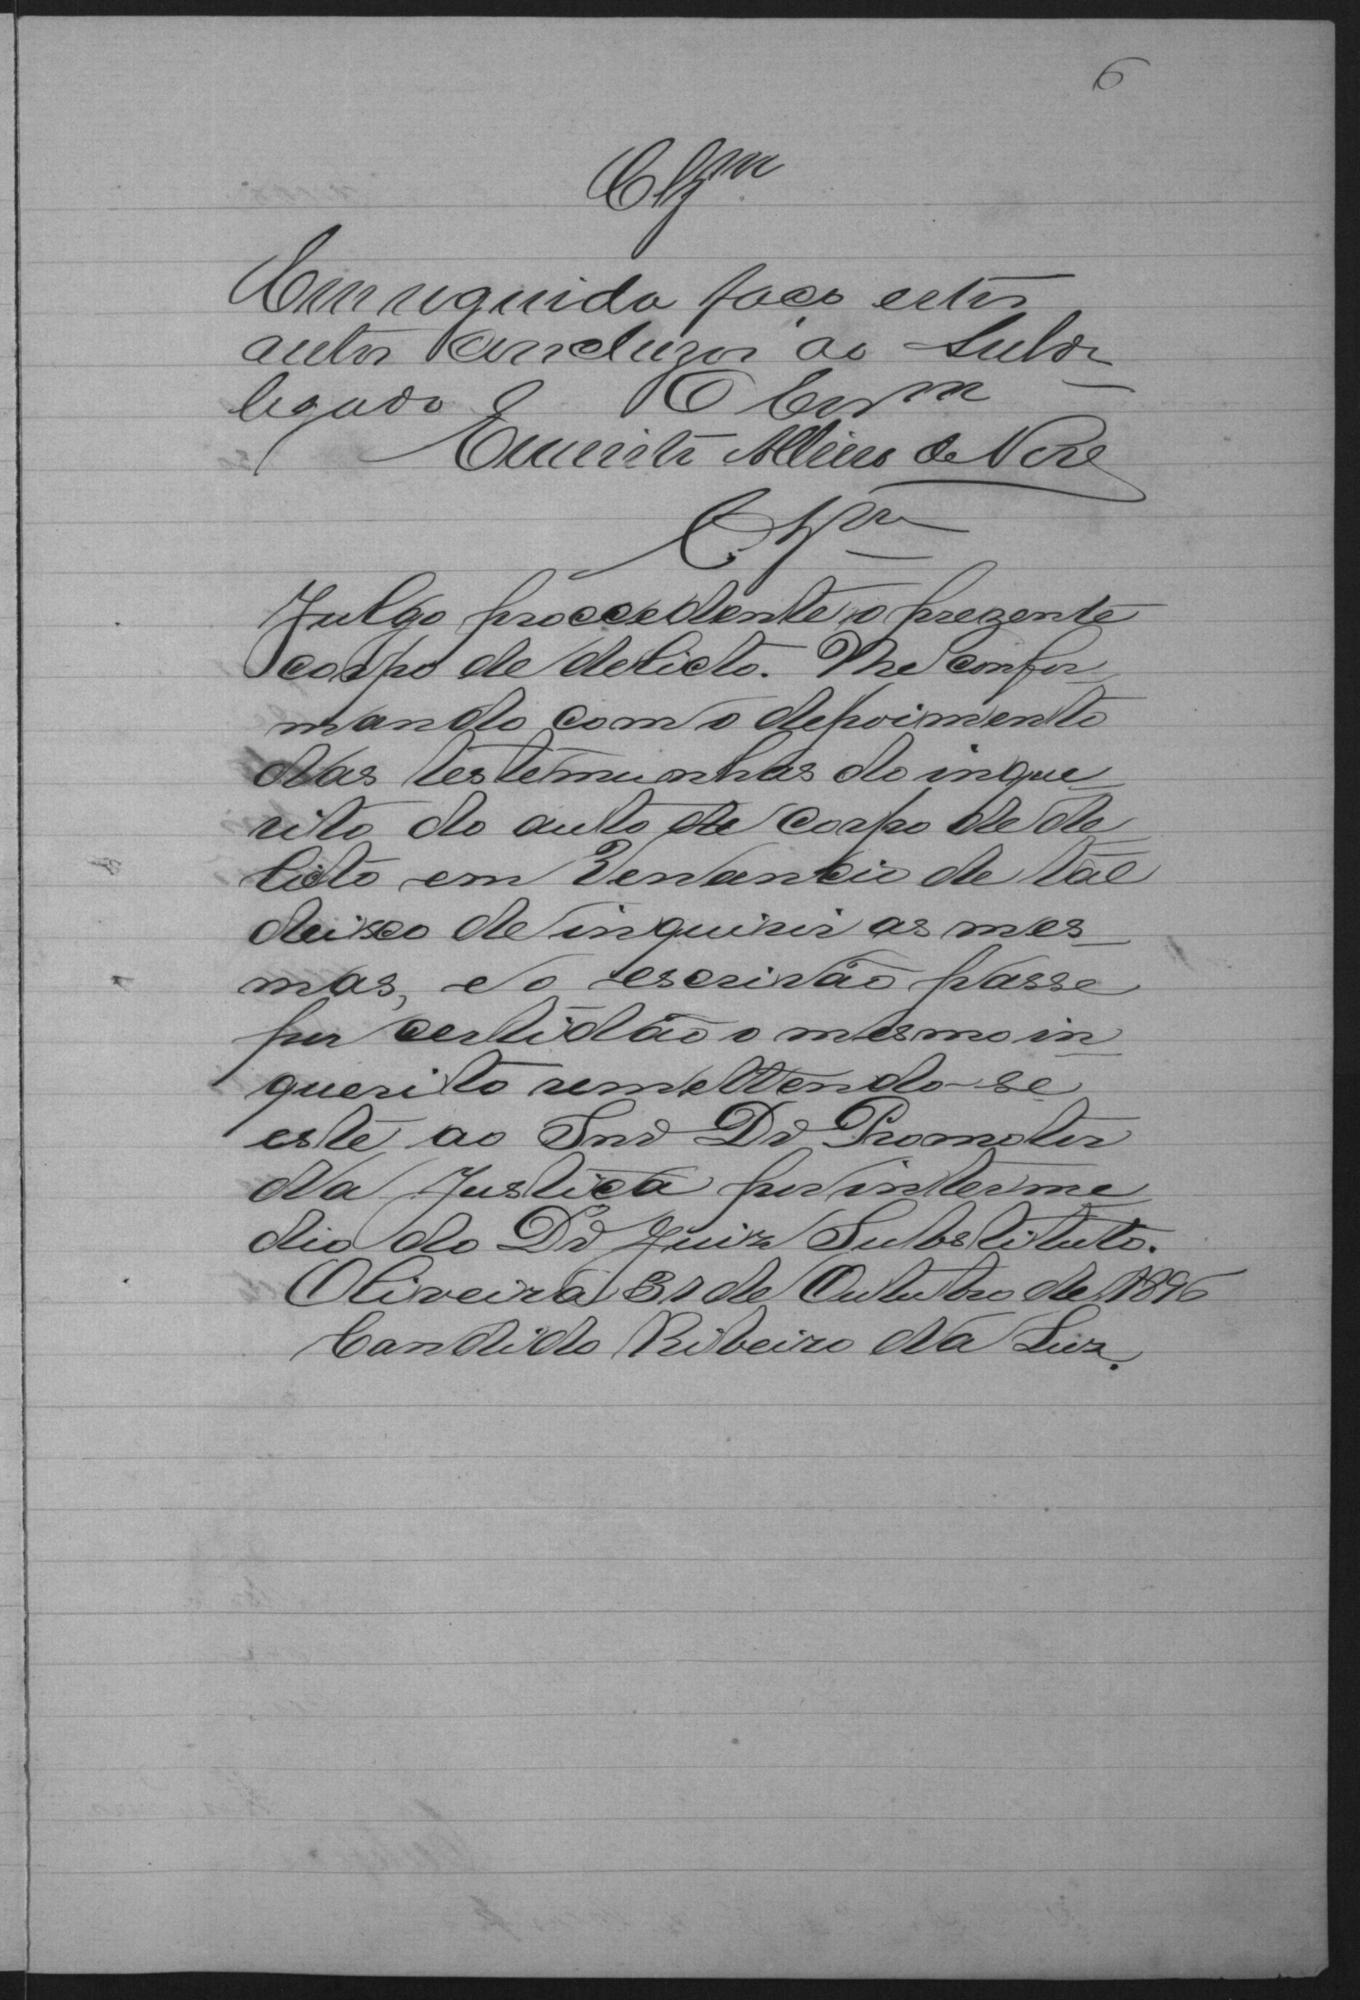 6
Clzm
Em seguida faço estes
autos concluzos ao Subde
legado O Escrm
Emerito Alves de
Clzm
Julgo proccedente o prezente
corpo de delicto. Me confor
mando com o depoimento
das testemunhas do inque
rito do auto de corpo de de
licto em Venancio de tal
deixo de inquirir as mes
mas, e o escrivão passe
por certidão o mesmo in
querito remettendo-se
este ao Snr Dr Promotor
da Justiça por interme
dio do Dr Juiz Substituto.
Oliveira 31 de Outubro de 1896
Candido Ribeiro da Luz.